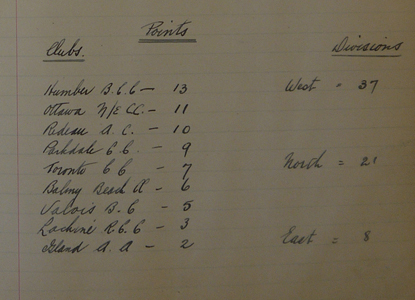 Points
Clubs. Divisions
Humber B.C.C - 13 West = 37
Ottawa N/E CC. - 11
Rideau A.C. - 10
Parkdale C.C. - 9
Toronto C C - 7 North = 21
Balmy Beach - 6
Valois B.C - 5
Lachine R.C.C - 3
Island A.A - 2 East = 8